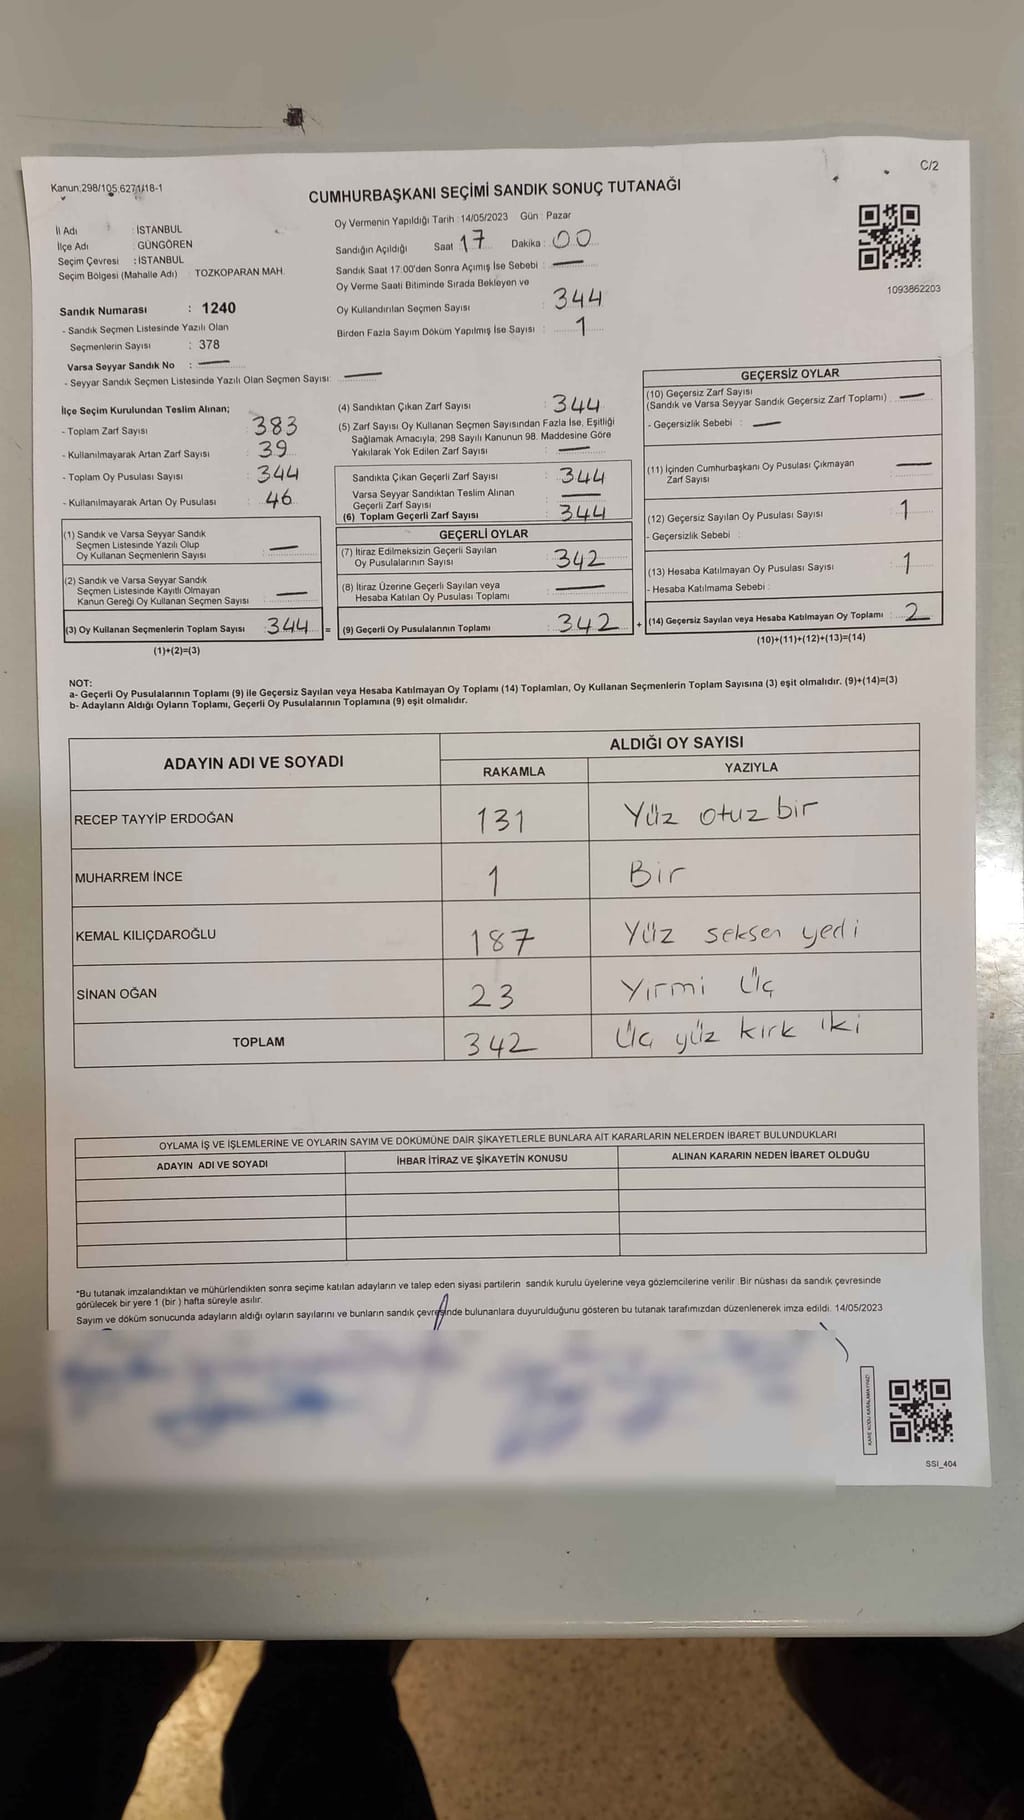 C/2
Kanun,298/105,6271/18-1
CUMHURBAŞKANI SEÇİMİ SANDIK SONUÇ TUTANAĞI
İl Adı : İSTANBUL
İlçe Adı : GÜNGÖREN
Seçim Çevresi : İSTANBUL
Seçim Bölgesi (Mahalle Adı) : TOZKOPARAN MAH.
Sandık Numarası : 1240
- Sandık Seçmen Listesinde Yazılı Olan
Seçmenlerin Sayısı : 378
Varsa Seyyar Sandık No : —
- Seyyar Sandık Seçmen Listesinde Yazılı Olan Seçmen Sayısı: —
Oy Vermenin Yapıldığı Tarih : 14/05/2023 Gün : Pazar
Sandığın Açıldığı Saat 17 Dakika : 00
Sandık Saat 17:00'den Sonra Açımış İse Sebebi : —
Oy Verme Saati Bitiminde Sırada Bekleyen ve
Oy Kullandırılan Seçmen Sayısı : 344
Birden Fazla Sayım Döküm Yapılmış İse Sayısı : 1
1093862203
İlçe Seçim Kurulundan Teslim Alınan;
- Toplam Zarf Sayısı : 383
- Kullanılmayarak Artan Zarf Sayısı : 39
- Toplam Oy Pusulası Sayısı : 344
- Kullanılmayarak Artan Oy Pusulası : 46
(1) Sandık ve Varsa Seyyar Sandık
Seçmen Listesinde Yazılı Olup
Oy Kullanan Seçmenlerin Sayısı : —
(2) Sandık ve Varsa Seyyar Sandık
Seçmen Listesinde Kayıtlı Olmayan
Kanun Gereği Oy Kullanan Seçmen Sayısı : —
(3) Oy Kullanan Seçmenlerin Toplam Sayısı : 344 =
(1)+(2)=(3)
(4) Sandıktan Çıkan Zarf Sayısı : 344
(5) Zarf Sayısı Oy Kullanan Seçmen Sayısından Fazla İse, Eşitliği
Sağlamak Amacıyla, 298 Sayılı Kanunun 98. Maddesine Göre
Yakılarak Yok Edilen Zarf Sayısı : —
Sandıkta Çıkan Geçerli Zarf Sayısı : 344
Varsa Seyyar Sandıktan Teslim Alınan
Geçerli Zarf Sayısı : —
(6) Toplam Geçerli Zarf Sayısı : 344
GEÇERLİ OYLAR
(7) İtiraz Edilmeksizin Geçerli Sayılan
Oy Pusulalarının Sayısı : 342
(8) İtiraz Üzerine Geçerli Sayılan veya
Hesaba Katılan Oy Pusulası Toplamı : —
(9) Geçerli Oy Pusulalarının Toplamı : 342 +
GEÇERSİZ OYLAR
(10) Geçersiz Zarf Sayısı
(Sandık ve Varsa Seyyar Sandık Geçersiz Zarf Toplamı) : —
- Geçersizlik Sebebi : —
(11) İçinden Cumhurbaşkanı Oy Pusulası Çıkmayan
Zarf Sayısı : —
(12) Geçersiz Sayılan Oy Pusulası Sayısı : 1
- Geçersizlik Sebebi :
(13) Hesaba Katılmayan Oy Pusulası Sayısı : 1
- Hesaba Katılmama Sebebi :
(14) Geçersiz Sayılan veya Hesaba Katılmayan Oy Toplamı : 2
(10)+(11)+(12)+(13)=(14)
NOT:
a- Geçerli Oy Pusulalarının Toplamı (9) ile Geçersiz Sayılan veya Hesaba Katılmayan Oy Toplamı (14) Toplamları, Oy Kullanan Seçmenlerin Toplam Sayısına (3) eşit olmalıdır. (9)+(14)=(3)
b- Adayların Aldığı Oyların Toplamı, Geçerli Oy Pusulalarının Toplamına (9) eşit olmalıdır.
ADAYIN ADI VE SOYADI ALDIĞI OY SAYISI
RAKAMLA YAZIYLA
RECEP TAYYİP ERDOĞAN 131 Yüz otuz bir
MUHARREM İNCE 1 Bir
KEMAL KILIÇDAROĞLU 187 Yüz seksen yedi
SİNAN OĞAN 23 Yırmi Üç
TOPLAM 342 Üç yüz kırk iki
OYLAMA İŞ VE İŞLEMLERİNE VE OYLARIN SAYIM VE DÖKÜMÜNE DAİR ŞİKAYETLERLE BUNLARA AİT KARARLARIN NELERDEN İBARET BULUNDUKLARI
ADAYIN ADI VE SOYADI İHBAR İTİRAZ VE ŞİKAYETİN KONUSU ALINAN KARARIN NEDEN İBARET OLDUĞU
*Bu tutanak imzalandıktan ve mühürlendikten sonra seçime katılan adayların ve talep eden siyasi partilerin sandık kurulu üyelerine veya gözlemcilerine verilir. Bir nüshası da sandık çevresinde
görülecek bir yere 1 (bir ) hafta süreyle asılır.
Sayım ve döküm sonucunda adayların aldığı oyların sayılarını ve bunların sandık çevresinde bulunanlara duyurulduğunu gösteren bu tutanak tarafımızdan düzenlenerek imza edildi. 14/05/2023
KARE KODU KARALAMAYINIZ!
SSI_404